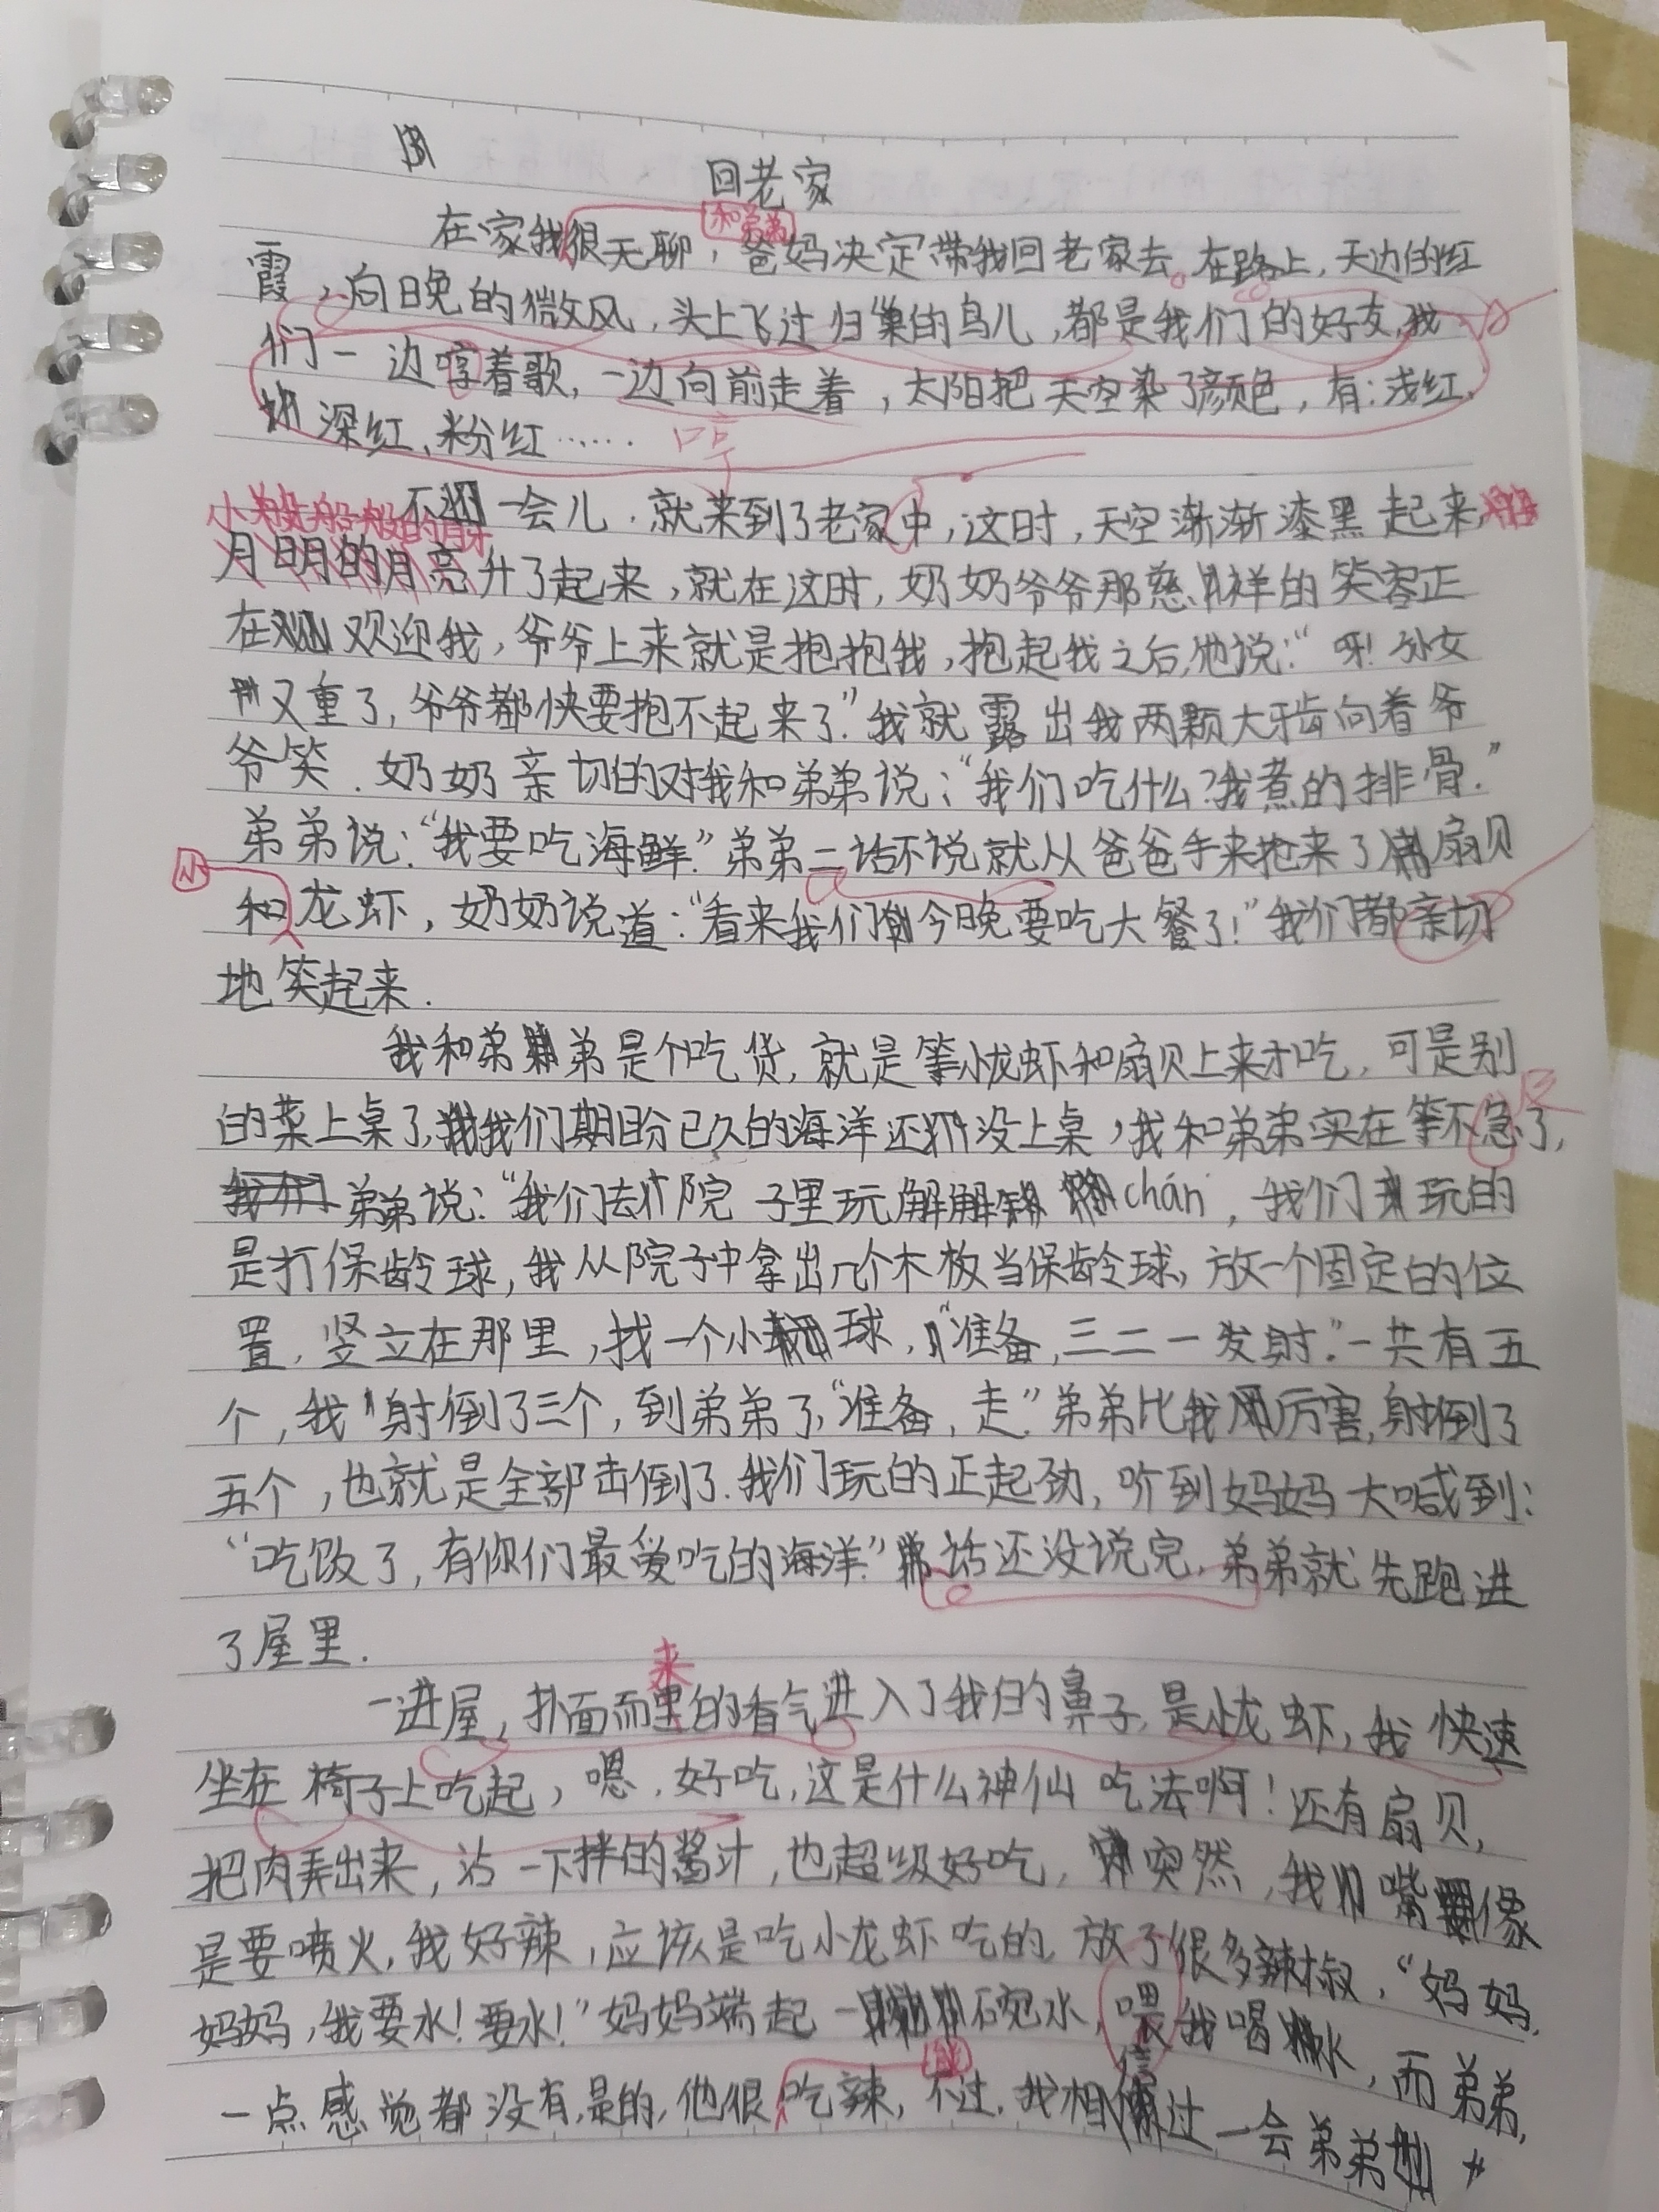 回老家
和弟弟
在家我很无聊，爸妈决定带我回老家去。在路上，天边的红
霞，向晚的微风，头上飞过归巢的鸟儿，都是我们的好友，我
们一边啍着歌，一边向前走着，太阳把天空染了颜色，有：浅红、
深红、粉红……
哼
不一会儿，就来到了老家中，这时，天空渐渐漆黑起来，
小船般的月牙
月明的月亮升了起来，就在这时，奶奶爷爷那慈祥的笑容正
在欢迎我，爷爷上来就是抱抱我，抱起我之后，他说：“呀！孙女
又重了，爷爷都快要抱不起来了.”我就露出我两颗大牙齿向着爷
爷笑.奶奶亲切的对我和弟弟说：“我们吃什么？我煮的排骨.”
弟弟说：“我要吃海鲜.”弟弟二话不说就从爸爸手来抢来了扇贝
小
和龙虾，奶奶说道：“看来我们今晚要吃大餐了！”我们都亲切
地笑起来.
我和弟弟是个吃货，就是等小龙虾和扇贝上来才吃，可是别
的菜上桌了，我们期盼已久的海洋还没上桌，我和弟弟实在等不急了，
及
弟弟说：“我们去院子里玩解解chán，我们玩的
是打保龄球，我从院子中拿出几个木板当保龄球，放一个固定的位
置，竖立在那里，找一个小球，“准备，三二一发射.”一共有五
个，我射倒了三个，到弟弟了，“准备，走.”弟弟比我厉害，射倒了
五个，也就是全部击倒了.我们玩的正起劲，听到妈妈大喊到：
“吃饭了，有你们最爱吃的海洋.”话还没说完，弟弟就先跑进
了屋里.
来
一进屋，扑面而里的香气进入了我的鼻子，是小龙虾，我快速
坐在椅子上吃起，嗯，好吃，这是什么神仙吃法啊！还有扇贝，
把肉弄出来，沾一下拌的酱汁，也超级好吃，突然，我嘴像
是要喷火，我好辣，应该是吃小龙虾吃的，放了很多辣椒，“妈妈，
妈妈，我要水！要水！”妈妈端起一碗水，喂我喝水，而弟弟，
能
一点感觉都没有，是的，他很吃辣，不过，我相信过一会弟弟